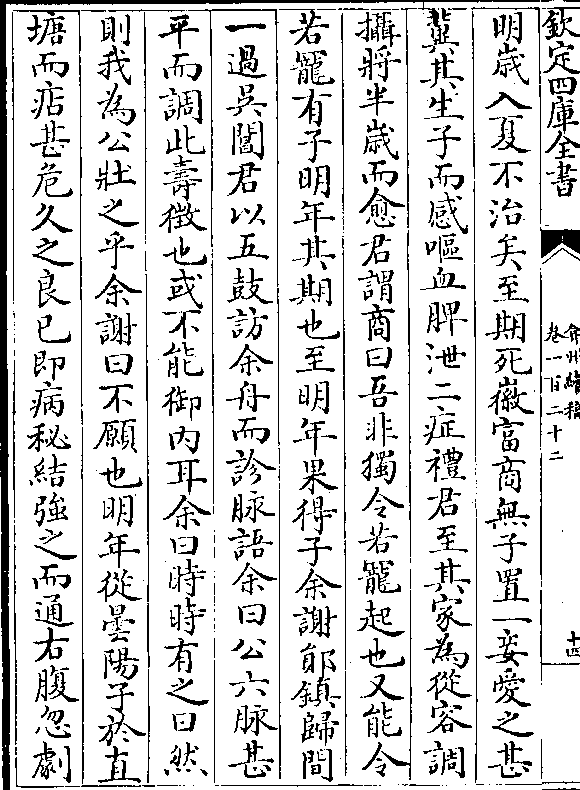 欽定四庫全書
弇州續稿
卷一百二十二
十四
明歲入夏不治矣至期死嶶富商無子置一妾愛之甚
冀其生子而感嘔血脾泄二症禮君至其家為從容調
攝將半歲而愈君謂商曰吾非獨令若寵起也又能令
若寵有子明年其期也至明年果得子余謝鄖鎮歸間
一過吳閶君以五鼓訪余舟而診脉語余曰公六脉甚
平而調此壽徴也或不能御内耳余曰時時有之曰然
則我為公壯之乎余謝曰不願也明年從曇陽子於直
塘而痁甚危久之良已即病秘結強之而通右腹忽劇